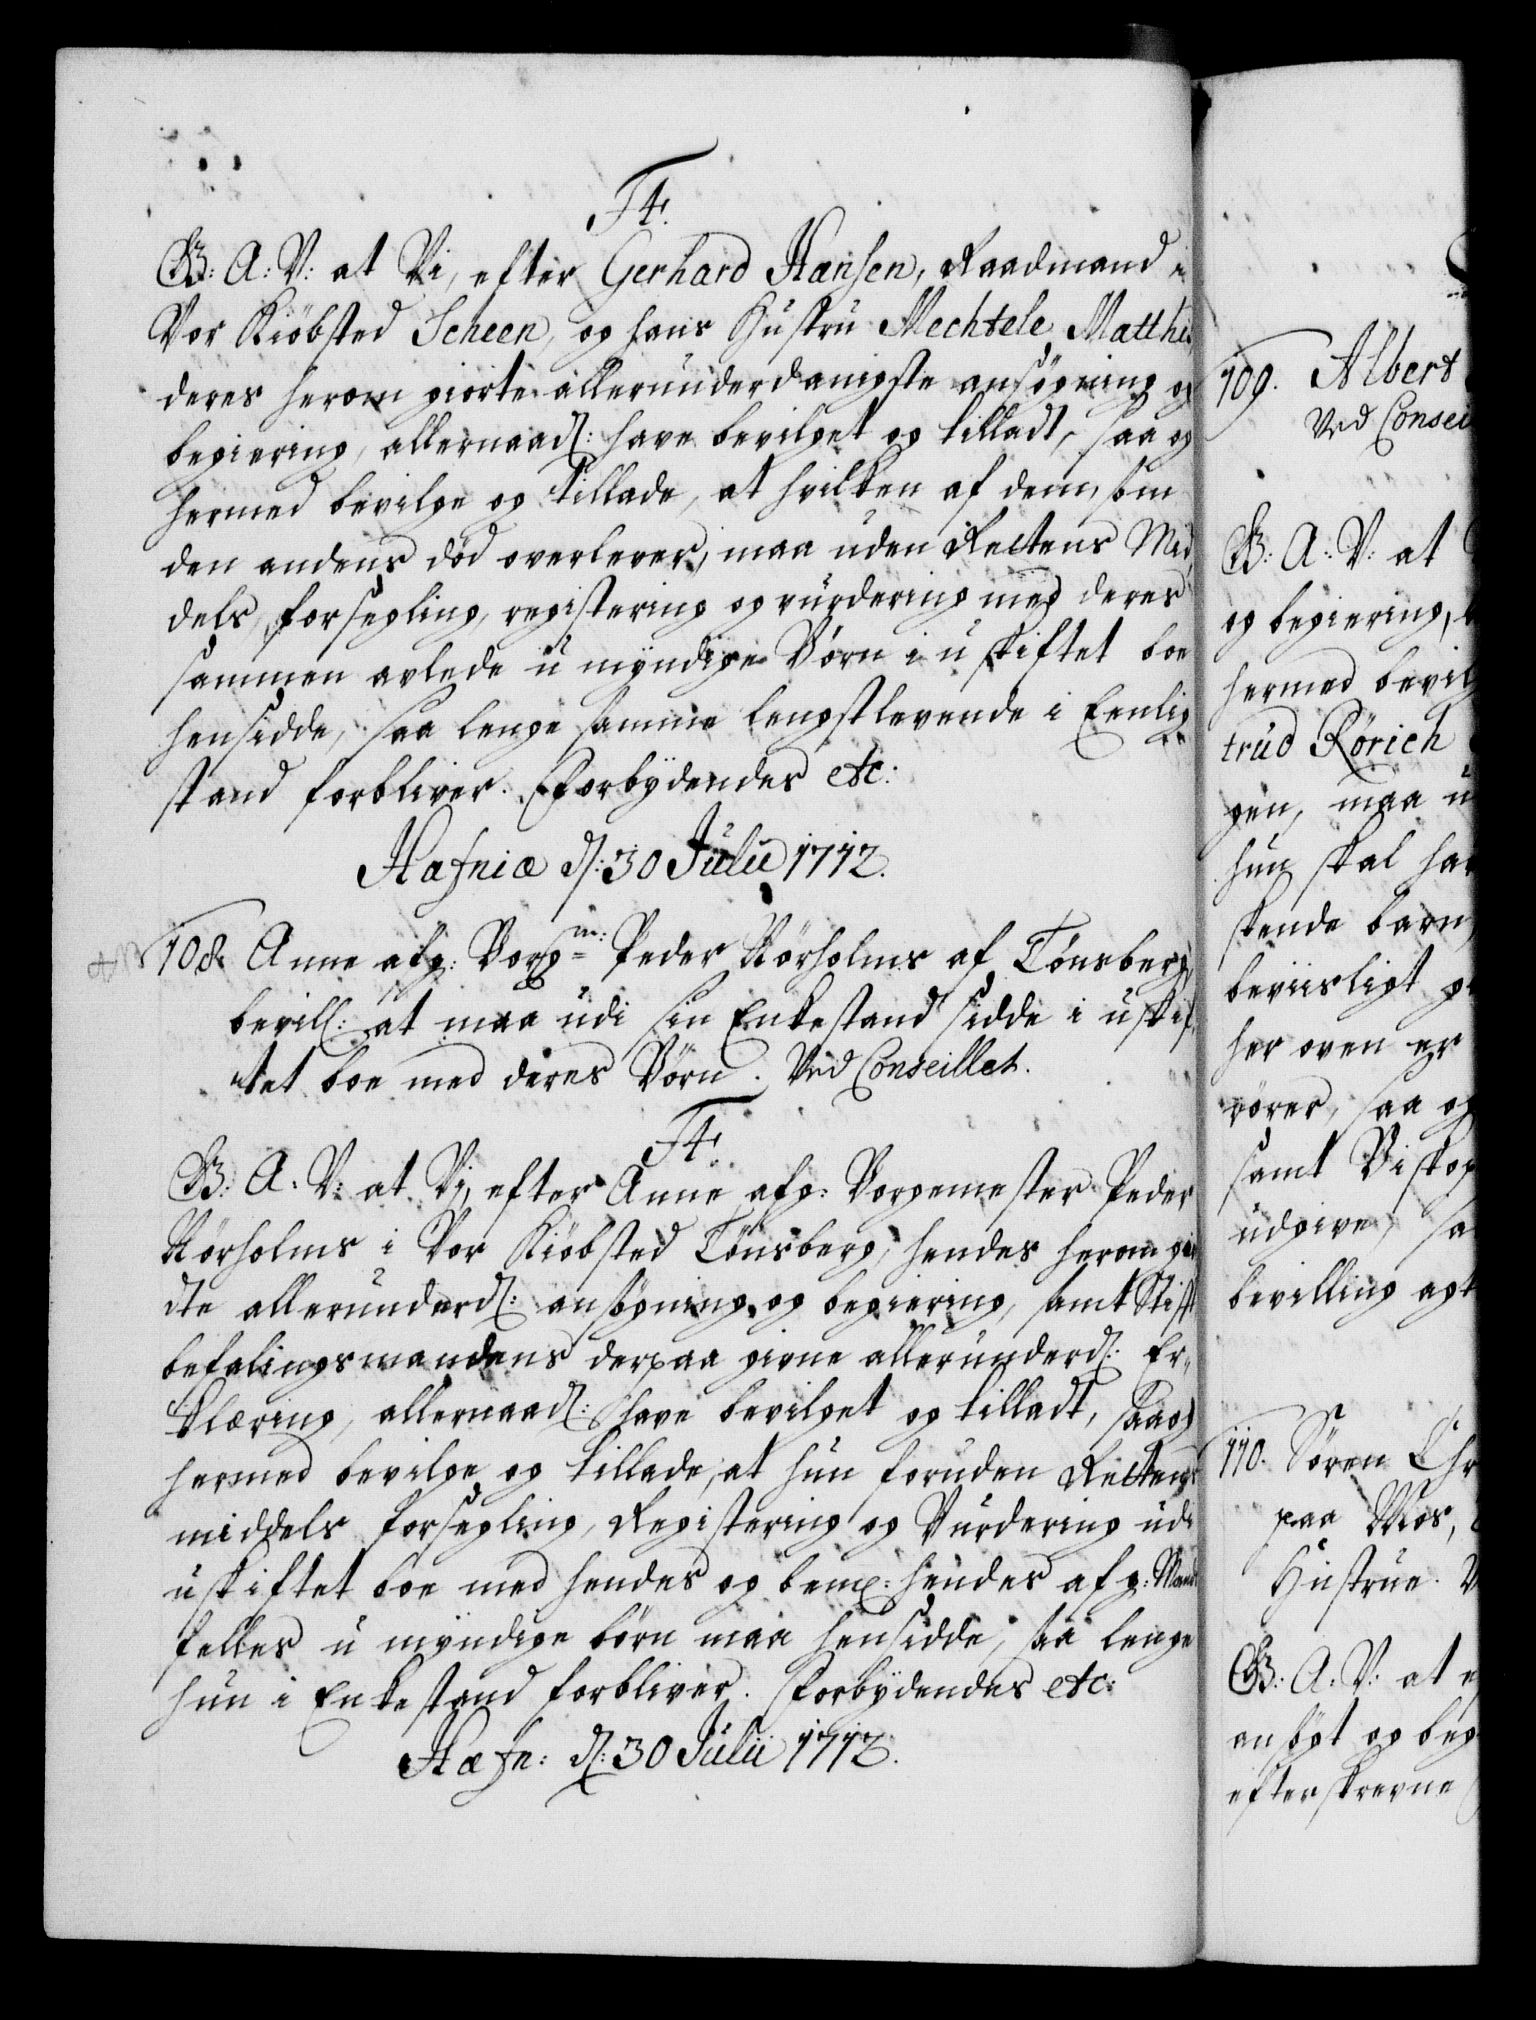 F4.
G: A: V: at Vi, efter Gerhard Hansen, Raadmand i
Vor Kiöbsted Scheen, og hans Hustru Mechtele Matthi
deres herom giorte allerunderdanigste ansögning og
begiering, allernaad: have bevilget og tilladt, saa og
hermed bevilge og tillade, at hvilken af dem, som
den andens död overlever, maa uden Rettens Mid
dels, forsegling, registering og vurdering med deres
sammen avlede u myndige Börn i u skiftet boe
hensidde, saa lenge samme lengstlevende i Eenlig
stand forbliver. Forbydendes etc:
Hafniæ d: 30 Julii 1712.
108. Anne afg: Borgm: Peder Nörholms af Tönsberg,
bevill: at maa udi sin Enkestand sidde i uskif-
tet boe med deres Börn. Ved Conseillet.
F4.
G: A: V: at Vj, efter Anne afg: Borgemester Peder
Nörholms i Vor Kiöbsted Tönsberg, hendes herom gior
dte allerunderd: ansögning og begiering, samt Stift
befalingsmandens derpaa givne allerunderd: Er-
klæring, allernaad: have bevilget og tilladt, saa og
hermed bevilge og tillade, at hun foruden Rettens
middels forsegling, Registering og Vurdering udi
uskiftet boe med hendes og bem: hendes afg: Mands
felles u myndige börn maa hensidde, saa lenge
hun i Enkestand forbliver. Forbydendes etc:
Hafn: d: 30 Julii 1712.
109. Albert
Ved Consei
G: A: V: at
og begiering,
hermed bevilg
trud Rörich
gen, maa u
hun skal ha
skende barn,
beviisligt g
her oven er
rörer, saa og
samt Biskop
udgive, sa
bevilling agt
110. Sören Chr
paa Mos,
Hustrue. V
G: A: V: at e
ansögt og beg
efterskrevne